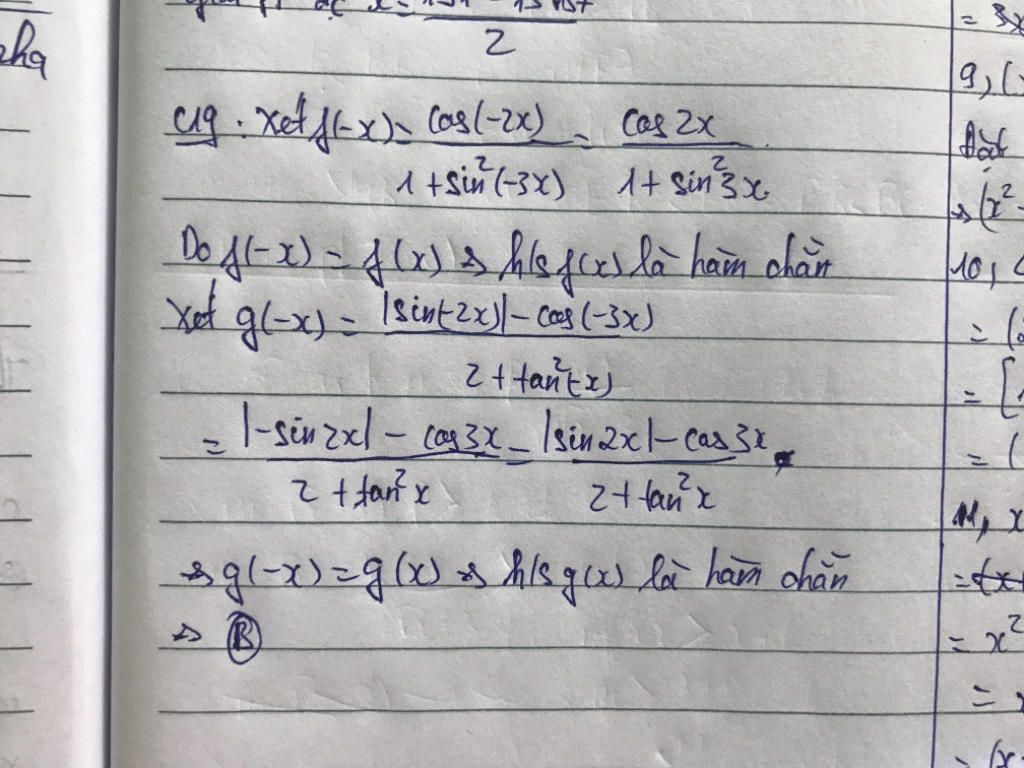 2
C19: Xét f(-x) = cos(-2x) / 1 + sin²(-3x) = cos 2x / 1 + sin²3x.
Do f(-x) = f(x) => h/s f(x) là hàm chẵn
Xét g(-x) = |sin(-2x)| - cos(-3x) / 2 + tan²(-x)
= |-sin 2x| - cos 3x / 2 + tan²x = |sin 2x| - cos 3x / 2 + tan²x.
=> g(-x) = g(x) => h/s g(x) là hàm chẵn
=> B
9, (
Đặt
=> (x²
10,
= (
= [
= (
11, x
= x²
=